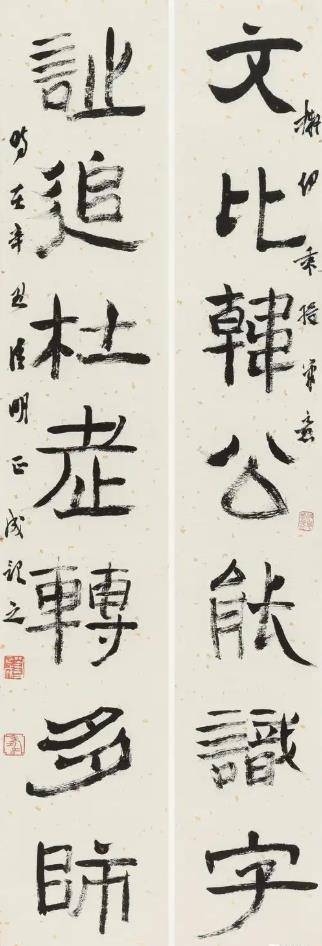 文比韓公能識字
擬伊秉綬筆意
詩追杜老轉多師
時在辛丑清明正成記之